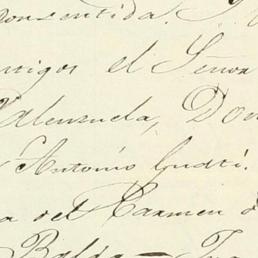 onsentida.
tigos el Señor
Valenzuela, Don
Antonio Gusti.
a del Carmen d
Balda